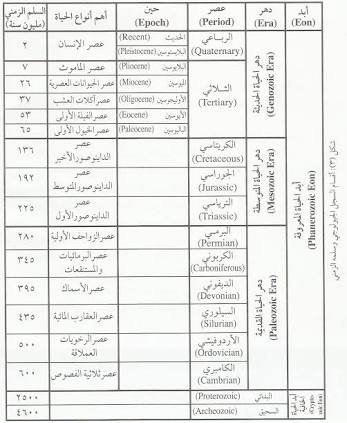 أبد
(Eon)
دهر
(Era)
عصر
(Period)
حين
(Epoch)
أهم أنواع الحياة
السلم الزمني
(مليون سنة)
أبد الحياة المعروفة
(Phanerozoic Eon)
دهر الحياة الحديثة
(Genozoic Era)
الرباعي
(Quaternary)
الحديث (Recent)
البلايستوسين (Pleistocene)
عصر الإنسان
٢
الثلاثي
(Tertiary)
(Pliocene)
عصر الماموث
٧
(Miocene)
عصر الحيوانات العصرية
٢٦
الأوليجوسين (Oligocene)
عصر آكلات العشب
٣٧
الأيوسين (Eocene)
عصر الفيلة الأولى
٥٣
الباليوسين (Paleocene)
عصر الخيول الأولى
٦٥
دهر الحياة المتوسطة
(Mesozoic Era)
الكريتاسي
(Cretaceous)
عصر
الداينوصور الأخير
١٣٦
الجوراسي
(Jurassic)
عصر
الداينوصور المتوسط
١٩٢
الترياسي
(Triassic)
عصر
الداينوصور الأول
٢٢٥
دهر الحياة القديمة
(Paleozoic Era)
البرمي
(Permian)
عصر الزواحف الأولية
٢٨٠
الكربوني
(Carboniferous)
عصر البرمائيات
والمستنقعات
٣٤٥
الديفوني
(Devonian)
عصر الأسماك
٣٩٥
السيلوري
(Silurian)
عصر العقارب المائية
٤٣٥
الأردوفيشي
(Ordovician)
عصر الرخويات
العملاقة
٥٠٠
الكامبري
(Cambrian)
عصر ثلاثية الفصوص
٦٠٠
أبد الحياة
الخافية
(Proterozoic)
٢٥٠٠
السحيق
(Archeozoic)
٤٦٠٠
أقسام السجل الجيولوجي وسلمه الزمني